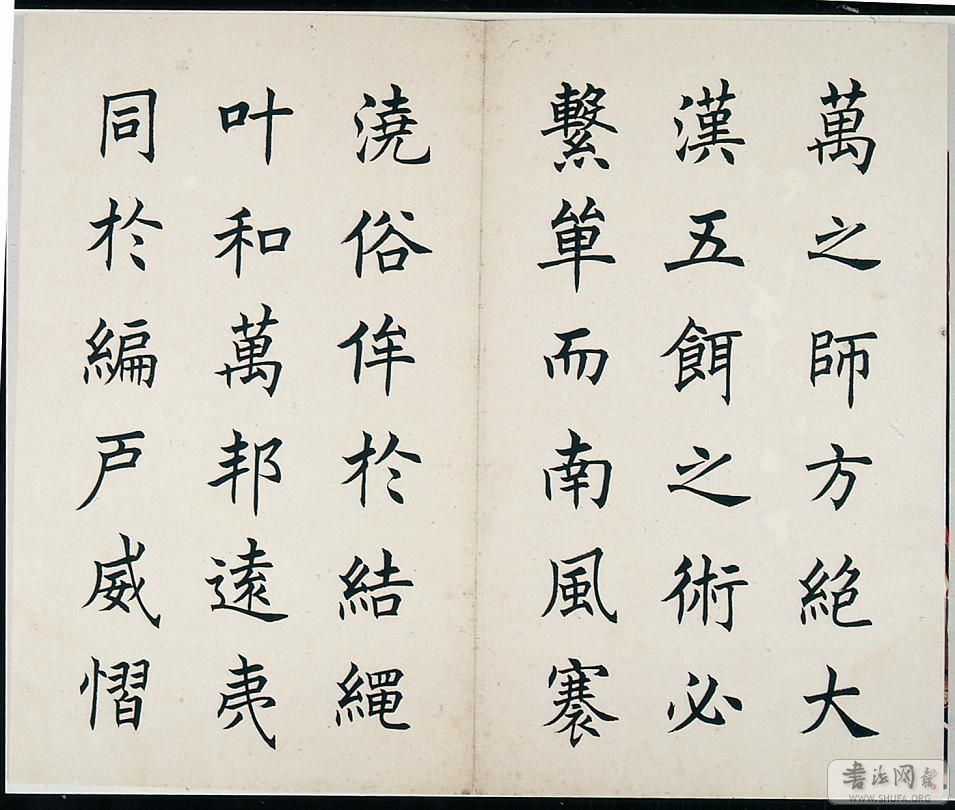 萬之師方絕大
漢五餌之術必
繫單而南風褰
澆俗侔於結繩
叶和萬邦遠夷
同於編戶威慴
书法网
WWW.SHUFA.ORG